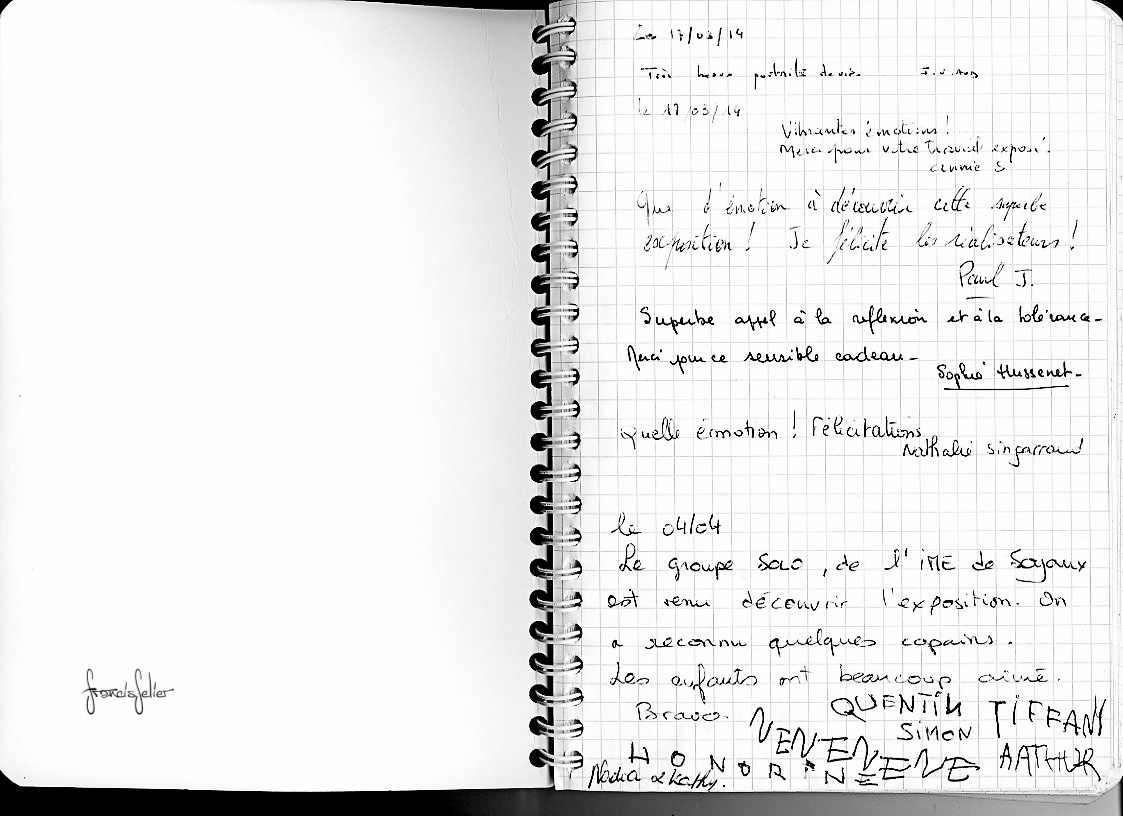 francis selier
Le 17/03/14
Très beaux portraits de vie.
le 17/03/14
Vibrantes émotions !
Merci pour votre travail exposé.
Annie S
Que d'émotion à découvrir cette superbe
exposition ! Je félicite les réalisateurs !
Paul J.
Superbe appel à la réflexion et à la tolérance -
Merci pour ce sensible cadeau -
Sophie Hussenet -
Quelle émotion ! Félicitations
Nathalie Singarraud
le 04/04
Le groupe SOLO, de l'IME de Soyaux
est venu découvrir l'exposition. On
a reconnu quelques copains.
Les enfants ont beaucoup aimé.
Bravo.
QUENTIN TIFFANY
SIMON
ARTHUR
HONORINE
Nadia & Kathy.